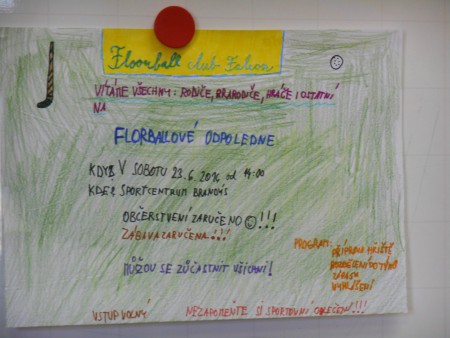 Floorball club Falcon
VÍTÁME VŠECHNY: RODIČE, PRARODIČE, HRÁČE I OSTATNÍ
NA
FLORBALLOVÉ ODPOLEDNE
KDY: V SOBOTU 23.6.2016 od 14:00
KDE: SPORTCENTRUM BRANDÝS
OBČERSTVENÍ ZARUČENO !!!
ZÁBAVA ZARUČENA!!!
MŮŽOU SE ZÚČASTNIT VŠICHNI!
PROGRAM: PŘÍPRAVA HŘIŠTĚ
ROZDĚLENÍ DO TÝMŮ
ZÁPASY
VYHLÁŠENÍ
VSTUP VOLNÝ
NEZAPOMEŇTE SI SPORTOVNÍ OBLEČENÍ!!!